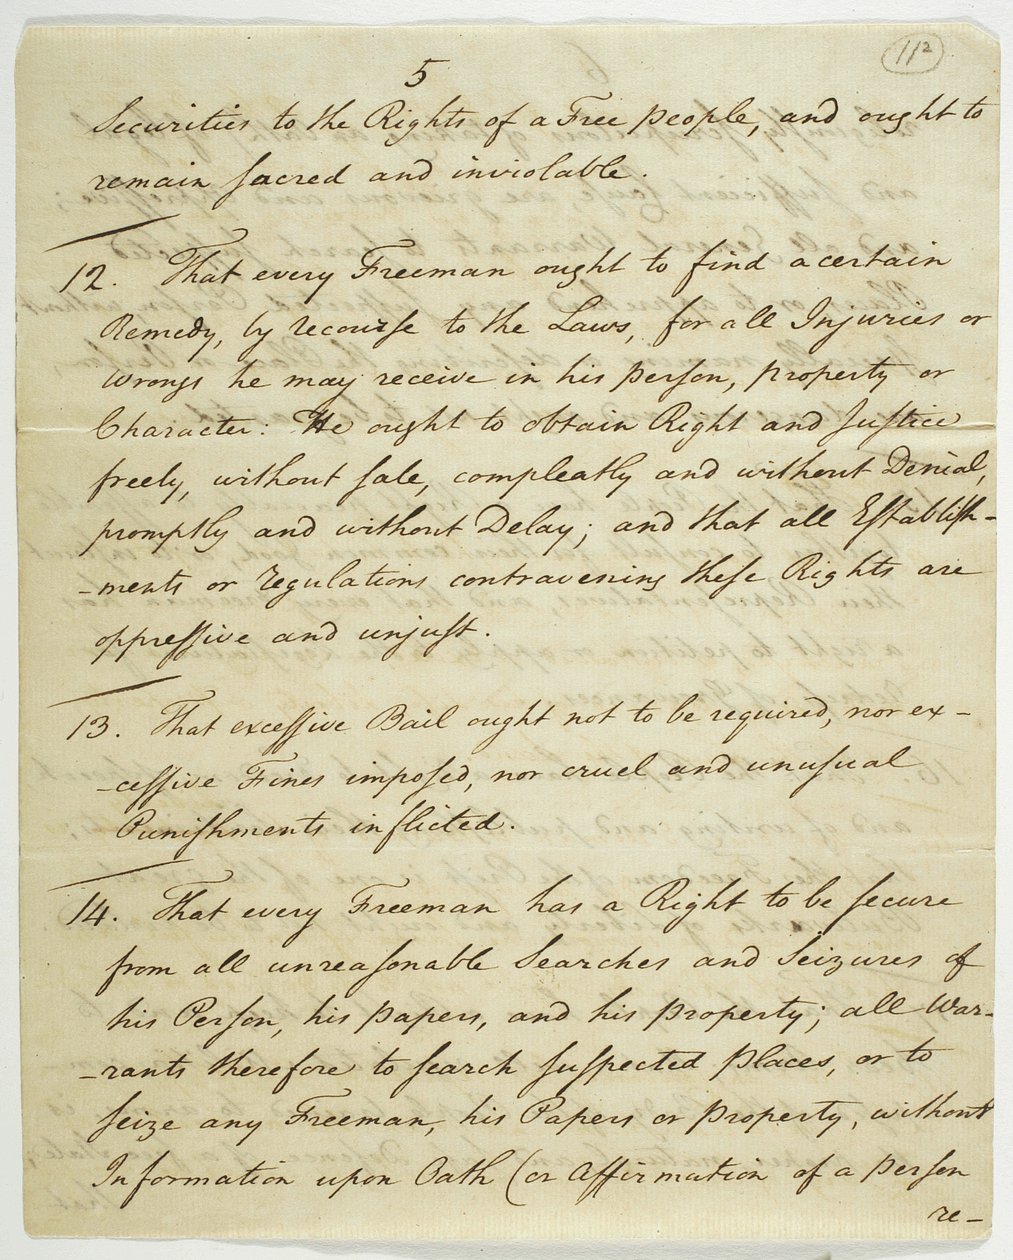 112
5
Securities to the Rights of a Free people, and ought to
remain sacred and inviolable.
12. That every Freeman ought to find a certain
Remedy, by recourse to the Laws, for all Injuries or
wrongs he may receive in his person, property or
Character: He ought to obtain Right and Justice
freely, without sale, compleatly and without Denial,
promptly and without Delay; and that all Establish-
-ments or regulations contravening these Rights are
oppressive and unjust.
13. That excessive Bail ought not to be required, nor ex-
-cessive Fines imposed, nor cruel and unusual
Punishments inflicted.
14. That every Freeman has a Right to be secure
from all unreasonable Searches and Seizures of
his Person, his papers, and his property; all War-
-rants therefore to search suspected places, or to
seize any Freeman, his Papers or property, without
Information upon Oath (or Affirmation of a person
re-